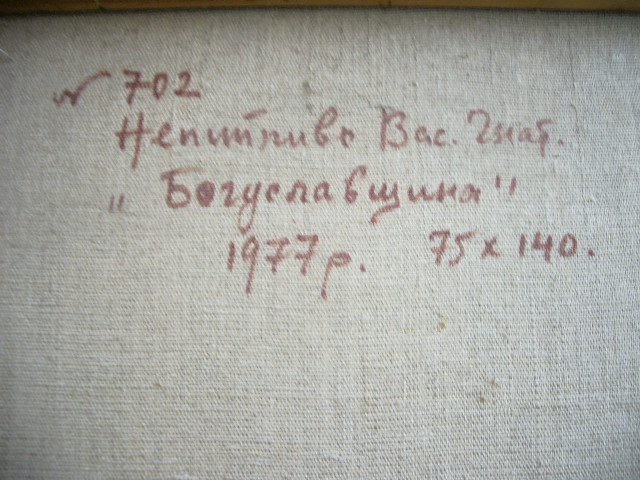 № 702
Непийпиво Вас. Гнат.
„Богуславщина"
1977 р. 75 х 140.